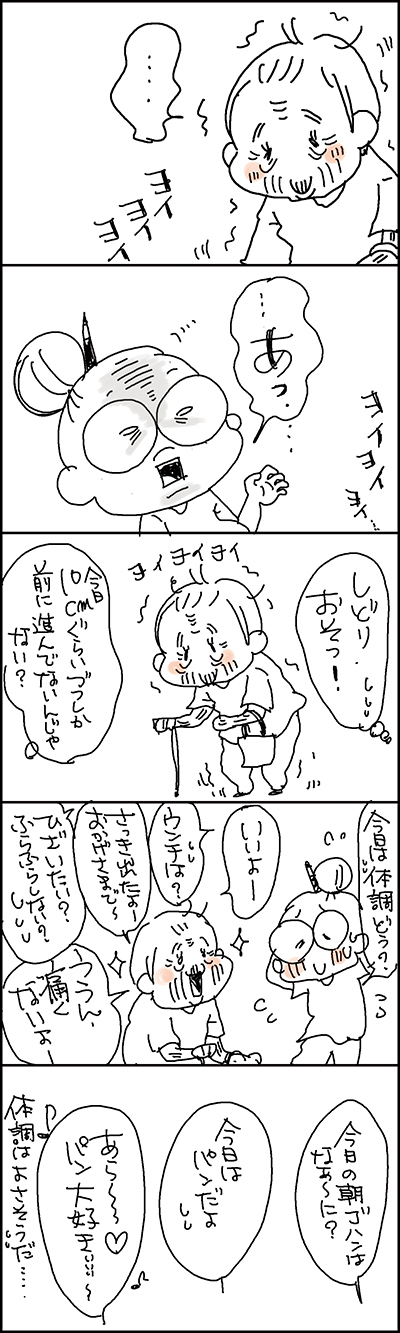 …
ヨイ
ヨイ
ヨイ
…あっ…
ヨイ
ヨイ
ヨイ…
ヨイヨイヨイ
しどり…
おそっ!
今日
10cmぐらいづつしか
前に進んでないんじゃ
ない?
今日は体調どう?
いいよー
ウンチは?
さっき出たよー
おかげさまで〜
ひざいたい?
ふらふらしない?
ううん、
痛く
ないよー
今日の朝ゴハンは
なぁ〜に?
今日は
パンだよ
あら〜〜♡
パン大好き!!!〜♪
体調はよさそうだ……